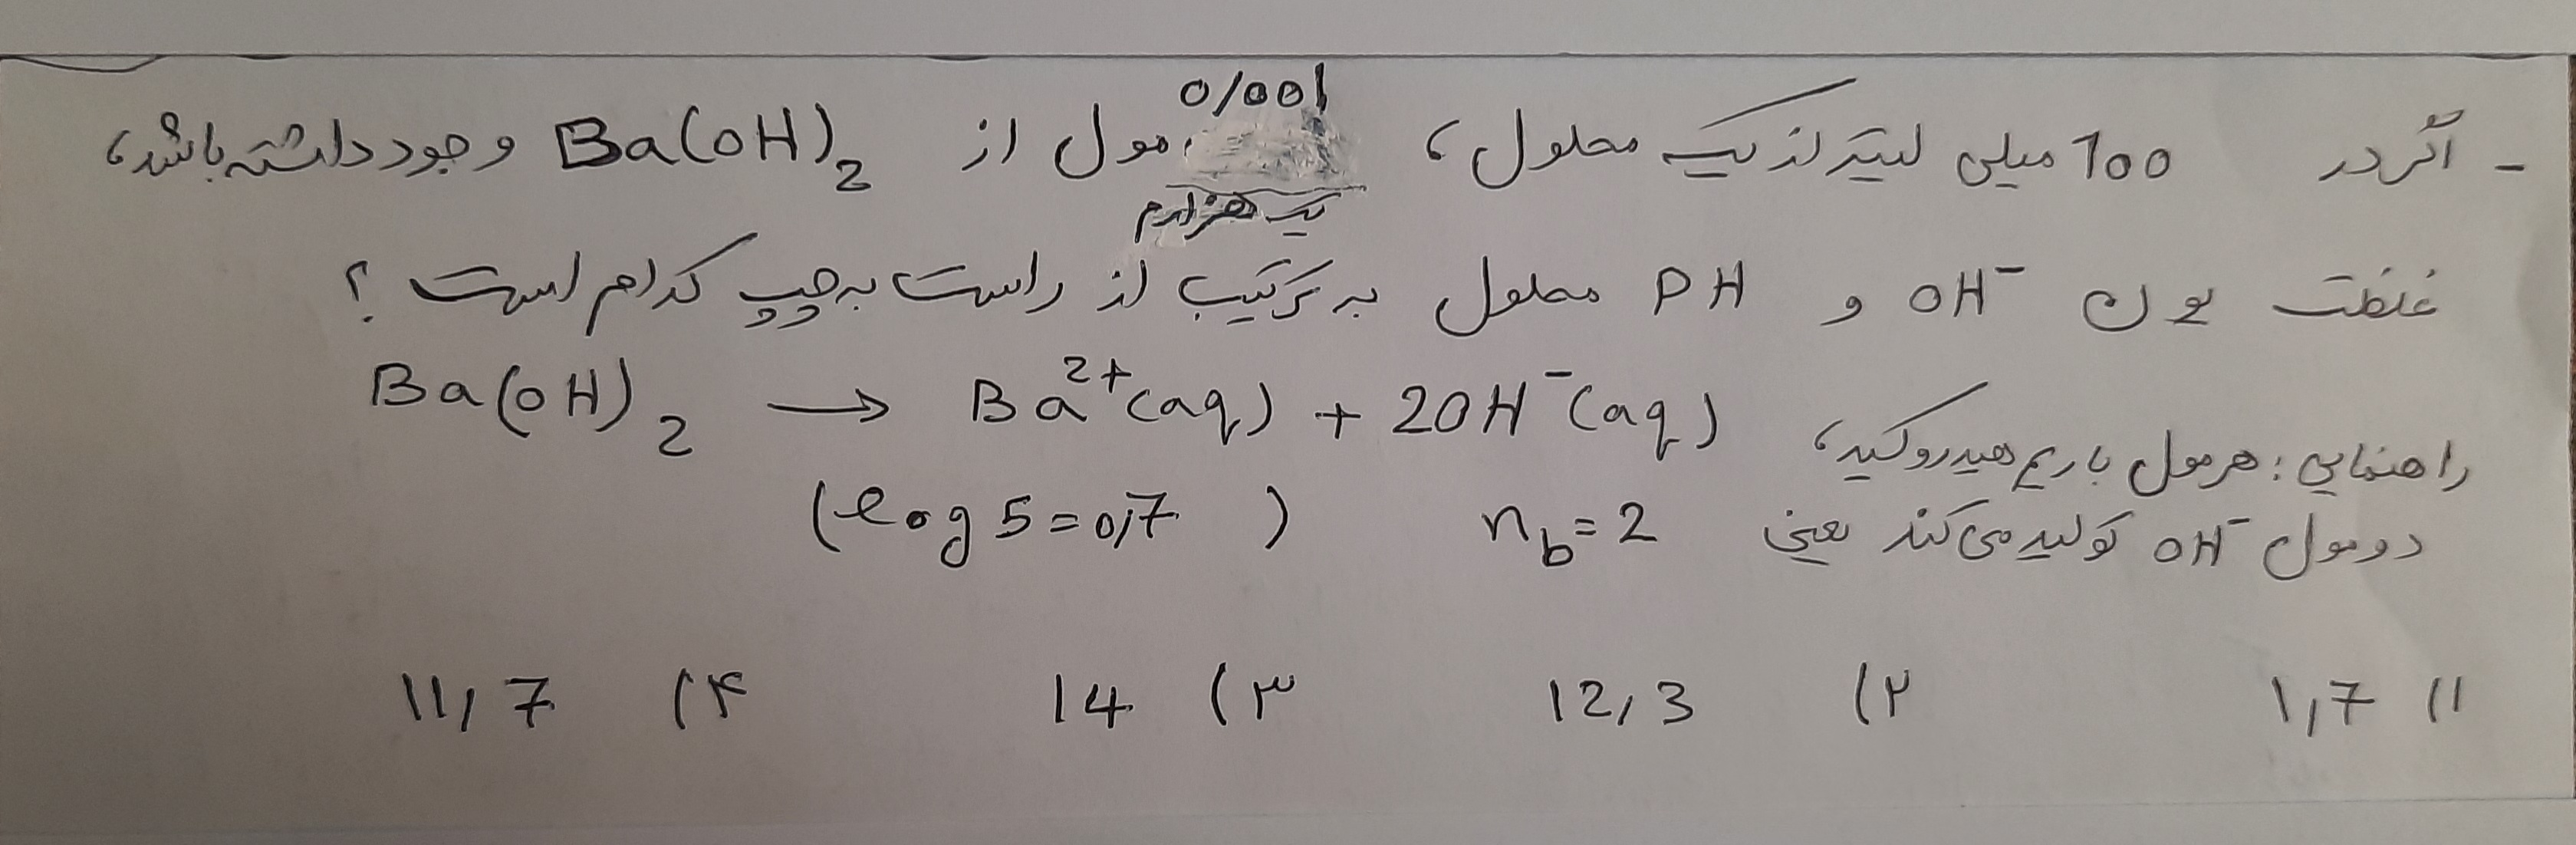 - اگر در 100 میلی لیتر از یک محلول، 0/001 مول از Ba(OH)2 وجود داشته باشد،
یک هزارم
غلظت یون OH⁻ و PH محلول به ترتیب از راست به چپ کدام است؟
Ba(OH)2 → Ba²⁺(aq) + 2OH⁻(aq)
راهنمایی: هر مول باریم هیدروکسید،
دو مول OH⁻ تولید می کند یعنی nb=2 (log 5=0,7)
۱) 1,7 ۲) 12,3 ۳) 14 ۴) 11,7